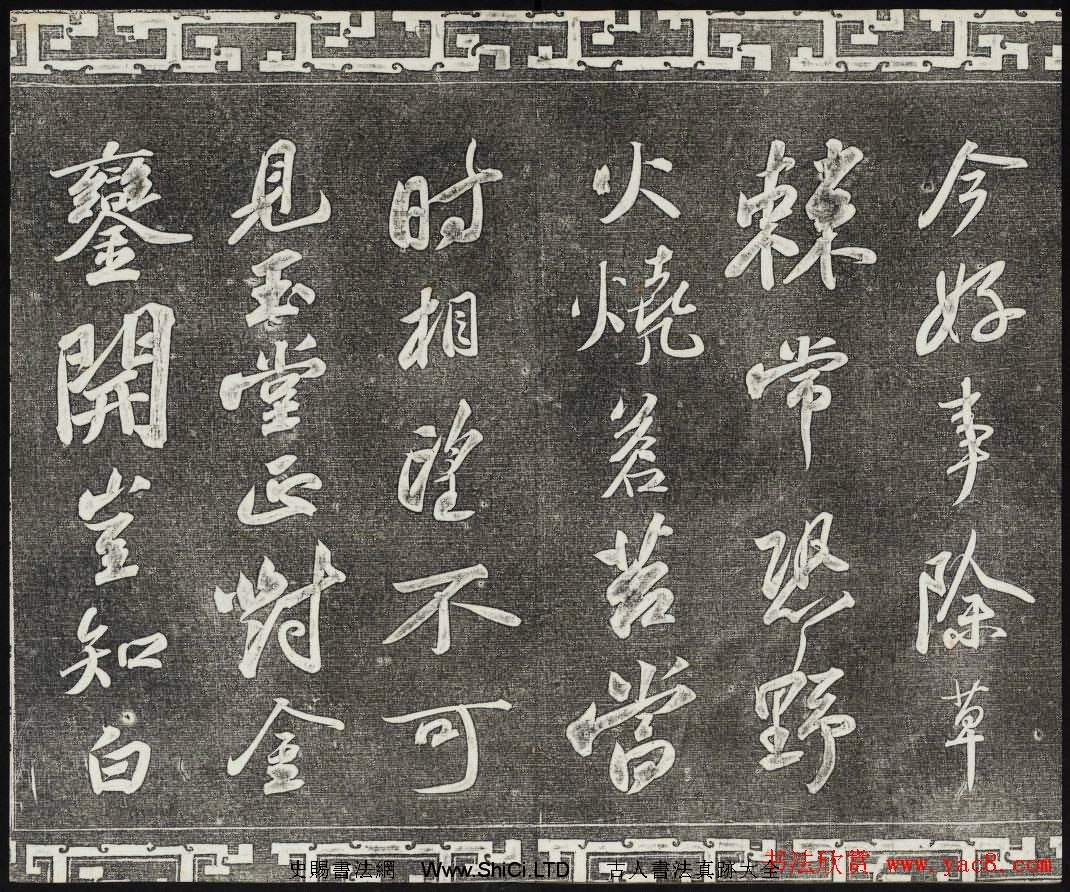 今好事除草
棘常恐野
火燒蒼苔當
時相望不可
見玉堂正對金
鑾開豈知白
史賜書法網 Www.ShiCi.LTD 古人書法真跡大全
书法欣赏 www.yac8.com